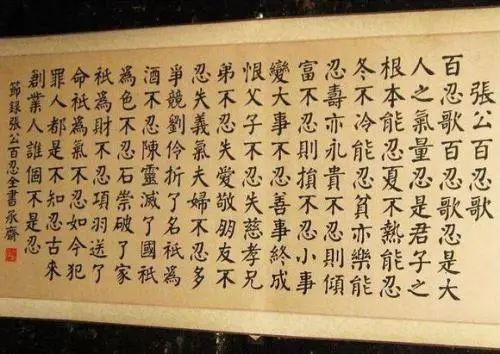 張公百忍歌
百忍歌百忍歌忍是大
人之氣量忍是君子之
根本能忍夏不熱能忍
冬不冷能忍貧亦樂能
忍壽亦永貴不忍則傾
富不忍則損不忍小事
變大事不忍善事終成
恨父子不忍失慈孝兄
弟不忍失愛敬朋友不
忍失義氣夫婦不忍多
爭競劉伶折了名祗為
酒不忍陳靈滅了國祗
為色不忍石崇破了家
祗為財不忍項羽送了
命祗為氣不忍如今犯
罪人都是不知忍古來
創業人誰個不是忍
節錄張公百忍全書承齋